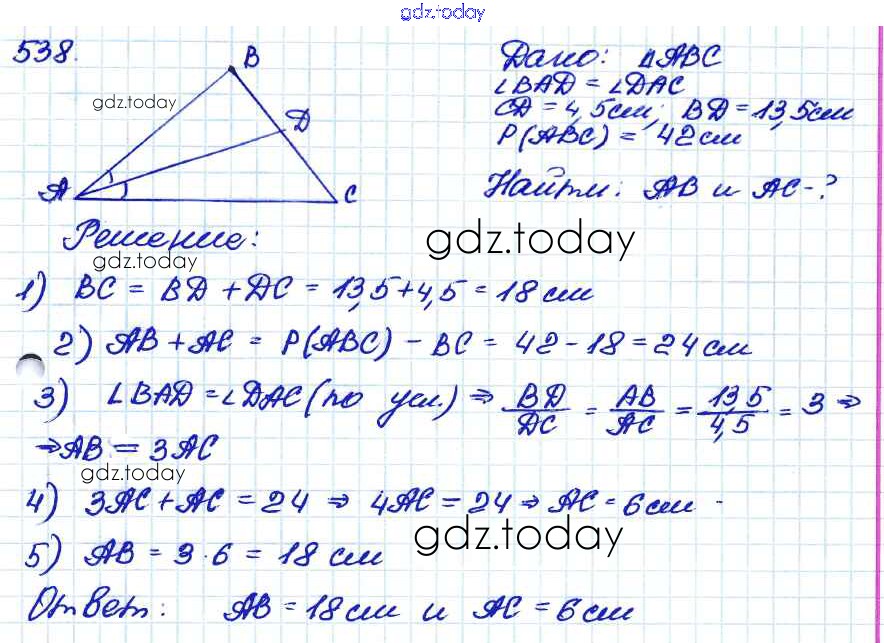 gdz.today
538.
B
Дано: △ABC
∠BAD = ∠DAC
gdz.today
CD = 4,5см; BD = 13,5см
D
P(ABC) = 42см
A
C
Найти: AB и AC-?
Решение:
gdz.today
gdz.today
1) BC = BD + DC = 13,5+4,5 = 18 см
2) AB + AC = P(ABC) - BC = 42-18 = 24 см
3) ∠BAD = ∠DAC (по усл.) ⇒ BD/DC = AB/AC = 13,5/4,5 = 3 ⇒
⇒ AB = 3AC
gdz.today
4) 3AC + AC = 24 ⇒ 4AC = 24 ⇒ AC = 6см
gdz.today
5) AB = 3·6 = 18 см
Ответ: AB = 18см и AC = 6см